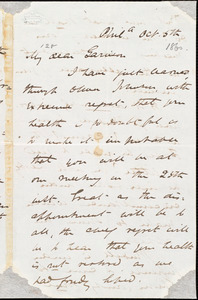 Phila Oct 5th
My dear Garrison
I have just learned
though Oliver Johnson with
extreme regret, that your
health is so doubtful as
to make it improbable
that you will be at
our meeting on the 25th
inst. Great as the dis-
appointment will be to
all, the chief regret will
be to hear that your health
is not restored as we
had fondly hoped